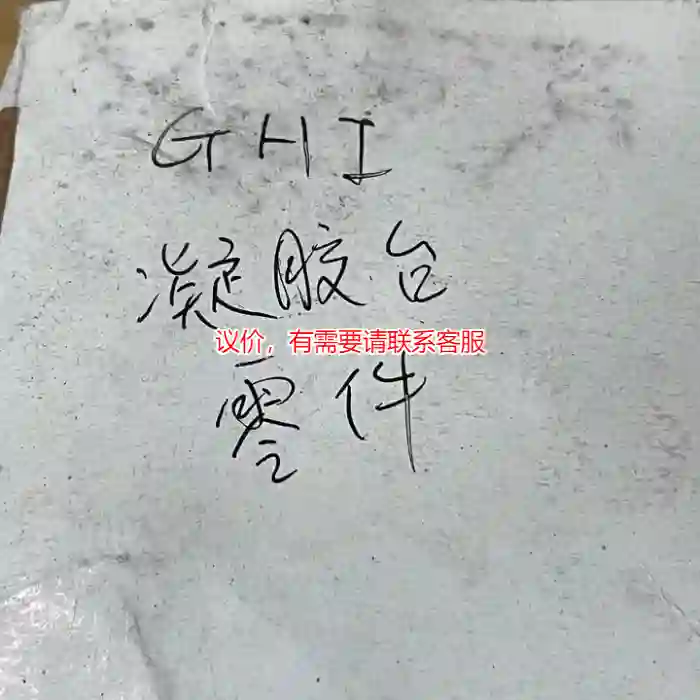 GHI
凝胶台
议价，有需要请联系客服
零件